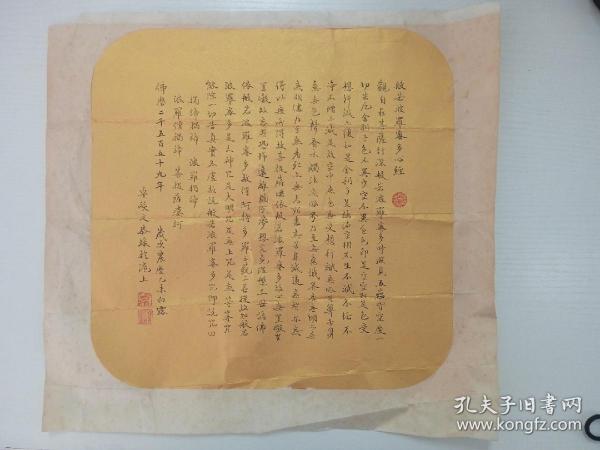 般若波羅蜜多心經
觀自在菩薩行深般若波羅蜜多時照見五蘊皆空度一
切苦厄舍利子色不異空空不異色色即是空空即是色受
想行識亦復如是舍利子是諸法空相不生不滅不垢不
淨不增不減是故空中無色無受想行識無眼耳鼻舌身
意無色聲香味觸法無眼界乃至無意識界無無明亦無
無明盡乃至無老死亦無老死盡無苦集滅道無智亦無
得以無所得故菩提薩埵依般若波羅蜜多故心無罣礙無
罣礙故無有恐怖遠離顛倒夢想究竟涅槃三世諸佛
依般若波羅蜜多故得阿耨多羅三藐三菩提故知般若
波羅蜜多是大神咒是大明咒是無上咒是無等等咒
能除一切苦真實不虛故說般若波羅蜜多咒即說咒曰
揭諦揭諦 波羅揭諦
波羅僧揭諦 菩提薩婆訶
佛曆二千五百五十九年 歲次農曆乙未白露
文恭録於滬上
孔夫子旧书网
www.kongfz.com